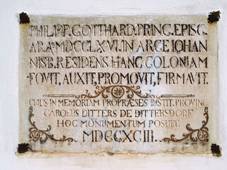 PHILIPP. GOTTHARD. PRINC. EPISC.
ARA. MDCCLXVI. IN ARCE IOHAN
NISB. RESIDENS HANC COLONIAM
FOVIT, AUXIT, PROMOVIT, FIRMAVIT.
CUIUS IN MEMORIAM PROPRAESES INSTIT. PROVINC
CAROLUS DITTERS DE DITTERSDORF
HOC MONUMENTUM POSUIT
MDCCXCIII.